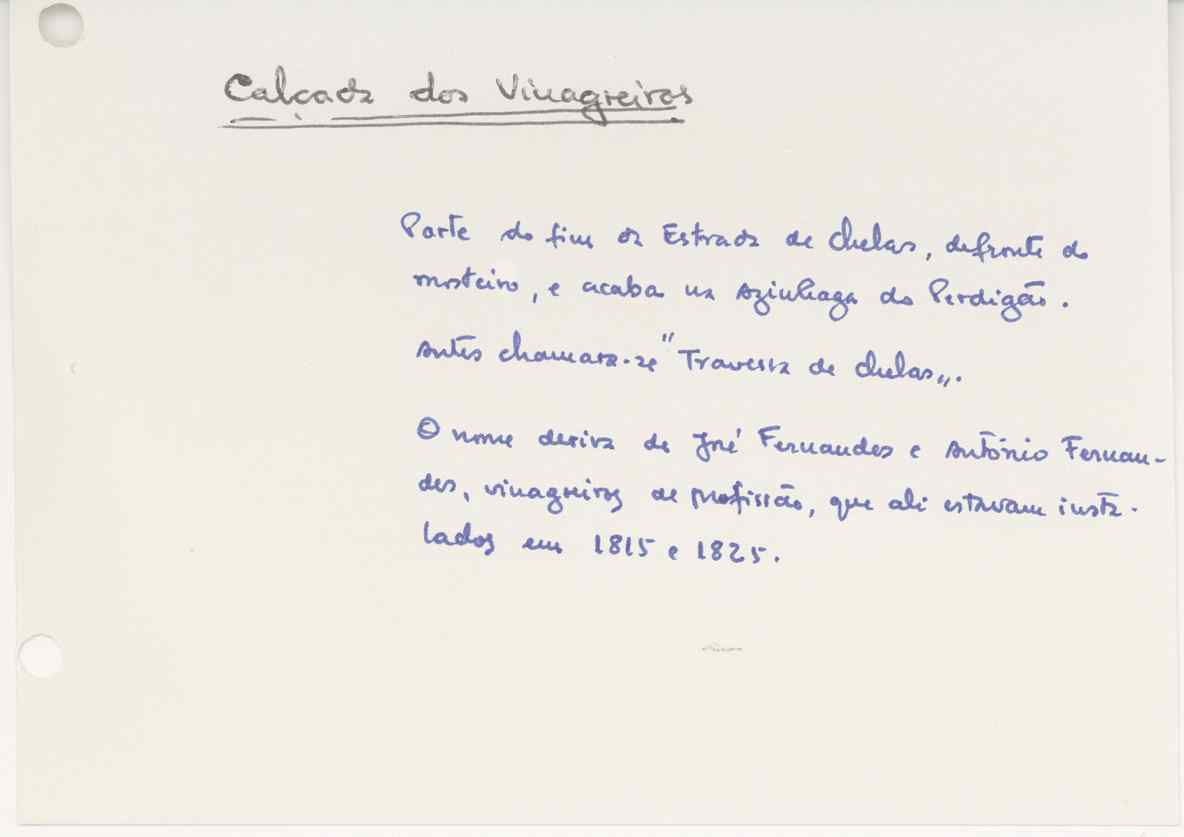 Calçada dos Vinagreiros
Parte do fim da Estrada de Chelas, defronte do
mosteiro, e acaba na Azinhaga do Perdigão.
Antes chamara-se "Travessa de Chelas".
O nome deriva de José Fernandes e António Fernan-
des, vinagreiros de profissão, que ali estavam insta-
lados em 1815 e 1825.